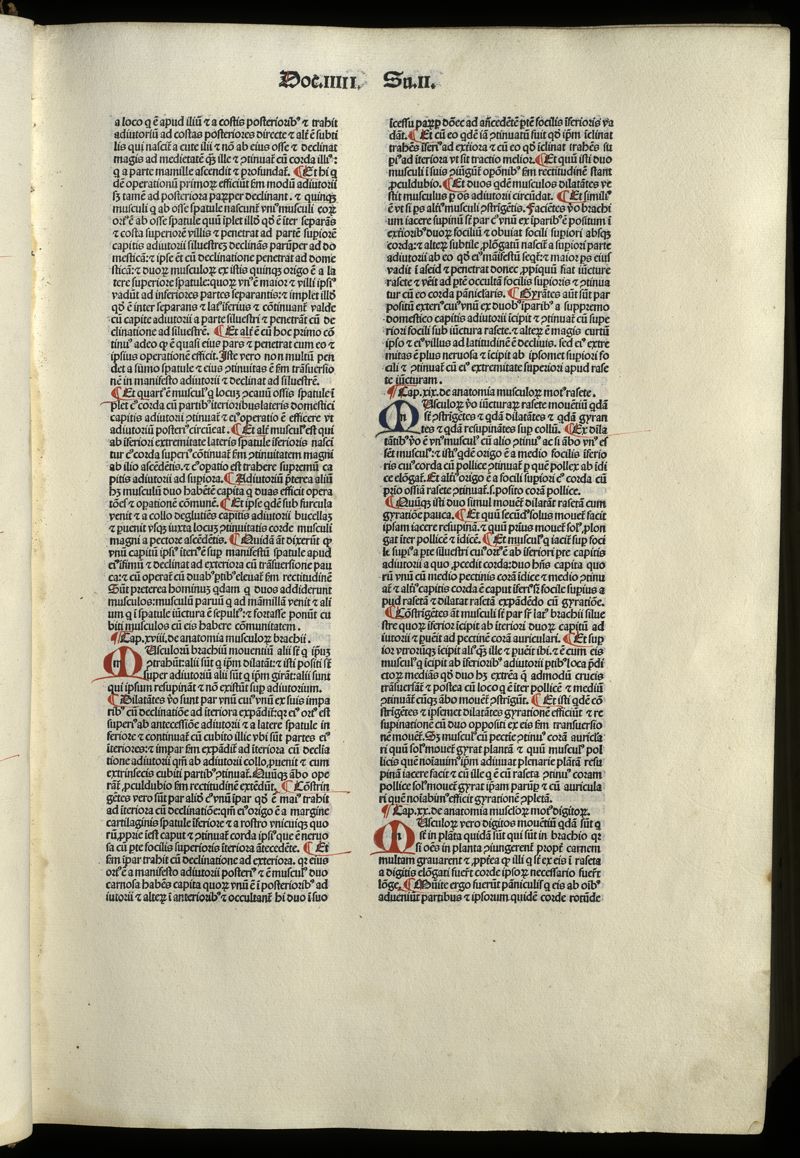 Doc̄.IIII. Su.II.
a loco q̄ ē apud iliū ⁊ a costis posterioribꝰ ⁊ trahit
adiutoriū ad costas posteriores directe ⁊ alt̄ ē subti
lis qui nascit̄ a cute ilii ⁊ nō ab eius osse ⁊ declinat
magis ad medietatē q̄ꝫ ille ⁊ ꝯtinuat̄ cū corda illiꝰ:
q̄ a parte mamille ascendit ⁊ profundat̄. ¶ Et hi q̄
dē operationū primoꝝ efficiūt ẜm modū adiutorii
sꝫ tamē ad posteriora paꝝper declinant. ⁊ quinqꝫ
musculi q̄ ab osse spatule nascunt̄ vniꝰ musculi coꝝ
oriꝰ ē ab osse spatule quū īplet illō qd̓ ē iter separās
⁊ costa superiorē villis ⁊ penetrat ad partē supiorē
capitis adiutorii siluestreꝫ declinās parūper ad do
mesticā: ⁊ ipse ēt cū declinatione penetrat ad dome
sticā: ⁊ duoꝝ musculoꝝ ex istis quinqꝫ origo ē a la
tere superiore spatule: quoꝝ vnꝰ ē maior ⁊ villi ipsiꝰ
vadūt ad inferiores partes separantis: ⁊ implet illō
qd̓ ē inter separans ⁊ latꝰ iferius ⁊ cōtinuant̄ valde
cū capite adiutorii a parte siluestri ⁊ penetrāt cū de
clinatione ad siluestrē. ¶ Et alt̄ ē cū hoc primo cō
tinuꝰ adeo ꝙ ē quasi eius pars ⁊ penetrat cum eo ⁊
ipsius operationē efficit. Iste vero non multū pen
det a sūmo spatule ⁊ eius ꝯtinuitas ē ẜm trāsuersio
nē in manifesto adiutorii ⁊ declinat ad siluestrē.
¶ Et quartꝰ ē musculꝰ q̄ locuꝫ ꝯcauū ossis spatule ī
plet ⁊ eiꝰ corda cū partibꝰ iterioribus lateris domestici
capitis adiutorii ꝯtinuat̄ ⁊ eiꝰ operatio ē efficere vt
adiutoriū posteriꝰ circūeat. ¶ Et alt̄ musculꝰ est qui
ab iferiori extremitate lateris spatule iferioris nasci
tur ⁊ eiꝰ corda superiꝰ cōtinuat̄ ẜm ꝯtinuitatem magni
ab ilio ascēdētis. ⁊ eiꝰ opatio est trahere supremū ca
pitis adiutorii ad supiora. ¶ Adiutoriū p̄terea aliū
hꝫ musculū duo habētē capita q̄ duas efficit opera
tōes ⁊ opationē cōmunē. ¶ Et ipse qdē sub furcula
venit ⁊ a collo degluties capitis adiutorii bucellaꝫ
⁊ puenit vsqꝫ iuxta locuꝫ ꝯtinuitatis corde musculi
magni a pectore ascēdētis. ¶ Quidā āt dixerūt ꝙ
vnū capitū ipsiꝰ iteriꝰ ē sup manifestū spatule apud
eiꝰ ifimū ⁊ declinat ad exteriora cū trāsuersione pau
ca: ⁊ cū operat̄ cū duabꝰ ptibꝰ eleuat̄ ẜm rectitudinē
Sūt preterea hominuꝫ qdam q̄ duos addiderunt
musculos: musculū paruū q̄ ad māmillā venit ⁊ ali
um q̄ i spatule iūctura ē sepultꝰ: ⁊ fortasse ponūt cu
biti musculos cū eis habere cōmunitatem.
¶ Cap. xviii. de anatomia musculoꝝ brachii.
MUsculoꝝ brachiū mouentiū alii st̄ q̄ ipm
ꝯtrahūt: alii sūt q̄ ipm dilatāt: ⁊ isti positi st̄
super adiutoriū alii sūt q̄ ipm girāt: alii sunt
qui ipsum resupināt ⁊ nō existūt sup adiutorium.
¶ Dilatātes v̄o sunt par vnū cuiꝰ vnū ex suis impa
ribꝰ cū declinatiōe ad iteriora expādit: qꝛ eiꝰ oriꝰ est
superiꝰ ab antecessiōe adiutorii ⁊ a latere spatule in
feriore ⁊ continuat̄ cū cubito illic vbi sūt partes eiꝰ
iteriores: ⁊ impar ẜm expādit ad iteriora cū declia
tione adiutorii qm̄ ab adiutorii collo ꝓuenit ⁊ cum
extrinsecis cubiti partibꝰ ꝯtinuat̄. Quūqꝫ ābo ope
rāt̄ ꝓculdubio ẜm rectitudinē extēdūt. ¶ Cōstrin
getes vero sūt par aliō ⁊ vnū ipar qd̓ ē maiꝰ trahit
ad iteriora cū declinatiōe: qm̄ eiꝰ origo ē a margine
cartilaginis spatule iferiore ⁊ a rostro vnicuiqꝫ quo
rū ꝓprie iest caput ⁊ ꝯtinuat̄ corda ipsiꝰ que ē neruo
sa cū pte focilis superioris iteriora ātecedēte. ¶ Et
ẜm ipar trahit cū declinatione ad exteriora. qꝛ eius
oriꝰ ē a manifesto adiutorii posteriꝰ ⁊ ē musculꝰ duo
carnosa habēs capita quoꝝ vnū ē i posterioribꝰ ad
iutorii ⁊ alteꝝ i anterioribꝰ ⁊ occultant̄ hi duo i suo
icessu paꝝp dōec ad añcedētē p̄tē focilis iferioris va
dāt. ¶ Et cū eo qdē iā ꝯtinuatū fuit qd̓ ipm iclinat
trahēs iferiꝰ ad extiora ⁊ cū eo qd̓ iclinat trahēs su
piꝰ ad iteriora vt sit tractio melior. ¶ Et quū isti duo
musculi i suis ꝯiūgūt oponibꝰ ẜm rectitudinē stant
ꝓculdubio. ¶ Et duos qdē musculos dilatātes ve
stit musculus p̄ os adiutorii circūdat. ¶ Et similiꝰ
ē vt sī ps aliꝰ musculi ꝯstrigētis. Faciētes v̄o brachi
um iacere supinū st̄ par ⁊ vnū ex iparibꝰ ē positum ī
extioribꝰ duoꝝ fociliū ⁊ obuiat focili supiori absqꝫ
corda: ⁊ alteꝝ subtile ꝓlōgatū nascit̄ a supiori parte
adiutorii ab eo qd̓ eiꝰ māifestū seqt̄: ⁊ maior ps eiꝰ
vadit ī aseid ⁊ penetrat donec ꝓpiquū fiat iūcture
rasete ⁊ vēit ad ptē occultā focilis supioris ⁊ ꝯtinua
tur cū eo corda pāniclaris. ¶ Gyrātes aūt sūt par
positū exteriꝰ cuiꝰ vnū ex duobꝰ iparibꝰ a suppremo
domestico capitis adiutorii icipit ⁊ ꝯtinuat̄ cū supe
riori focili sub iūctura rasete. ⁊ alteꝝ ē magis curtū
ipso ⁊ eiꝰ villus ad latitudinē ē decliuis. sed eiꝰ extre
mitas ē plus neruosa ⁊ icipit ab ipsomet supiori fo
cili ⁊ ꝯtinuat̄ cū eiꝰ extremitate superiori apud rase
te iūcturam.
¶ Cap. xix. de anatomia musculoꝝ motꝰ rasete.
MUsculoꝝ v̄o iūcturaꝝ rasete mouētiū qdā
st̄ ꝯstrigētes ⁊ qdā dilatātes ⁊ qdā gyran
tes ⁊ qdā resupinātes sup collū. ¶ Ex dila
tātibꝰ v̄o ē vnꝰ musculꝰ cū alio ꝯtinuꝰ ac si ābo vnꝰ eſ
sēt musculꝰ: ⁊ istiꝰ qdē origo ē a medio focilis iferio
ris cuiꝰ corda cū pollice ꝯtinuat̄ p quē pollex ab īdi
ce elōgat̄. Et altiꝰ origo ē a focili supiori ⁊ eiꝰ corda cū
p̄rio ossiū rasete ꝯtinuat̄. s. posito corā pollice.
¶ Quūqꝫ isti duo simul mouēt̄ dilatāt rasetā cum
gyratiōe pauca. ¶ Et quū secūdꝰ solus mouet̄ facit
ipsam iacere resupinā. ⁊ quū primus mouet̄ solꝰ ꝓlon
gat iter pollicē ⁊ idicē. ¶ Et musculꝰ q̄ iacit sup foci
le supiꝰ a pte siluestri cuiꝰ oriꝰ ē ab iferiori pte capitis
adiutorii a quo ꝓcedit corda: duo hn̄s capita quo
rū vnū cū medio pectinis corā idice ⁊ medio ꝯtinu
at̄ ⁊ altiꝰ capitis corda ē caput iferiꝰ sī focile supius a
pud rasetā ⁊ dilatat rasetā expādēdo cū gyratiōe.
¶ Cōstrigētes āt musculi st̄ par sī latꝰ brachii silue
stre quoꝝ iferior icipit ab iteriori duoꝝ capitū ad
iutorii ⁊ puēit ad pectinē corā auriculari. ¶ Et sup
ior vtroruꝫ icipit altꝰ qꝫ ille ⁊ puēit ibi. ⁊ ē cum eis
musculꝰ q̄ icipit ab iferioribꝰ adiutorii ptibꝰ loca p̄di
ctoꝝ mediās qd̓ duo hꝫ extrēa q̄ admodū crucis
trāsuersāt̄ ⁊ postea cū loco q̄ ē iter pollicē ⁊ mediū
ꝯtinuāt̄ cūqꝫ ābo mouēt̄ ꝯstrigūt. ¶ Et isti qdē cō
strigētes ⁊ ipsimet dilatātes gyrationē efficiūt ⁊ re
supinationē cū duo oppositi ex eis ẜm transuersio
nē mouēt̄. Sꝫ musculꝰ cū pectie ꝯtinuꝰ corā auricla
ri quū solꝰ mouet̄ gyrat plantā ⁊ quū musculꝰ pol
licis quē noīauimꝰ ipm adiuuat plenarie plātā resu
pinā iacere facit ⁊ cū ille q̄ ē cū raseta ꝯtinuꝰ coram
pollice solꝰ mouet̄ gyrat ipam parūp ⁊ cū auricula
ri quē noiabimꝰ efficit gyrationē ꝯpletā.
¶ Cap. xx. de anatomia muscloꝝ motꝰ digitoꝝ.
MUsculoꝝ vero digitos mouētiū qdā sūt q̄
st̄ in plāta quidā sūt qui sūt in brachio qꝛ
si oēs in planta ꝯiungerent̄ propt̄ carnem
multam grauarent ⁊ ꝓptea q̄ illi q̄ st̄ ex eis ī raseta
a digitis elōgati fuert̄ corde ipsoꝝ necessario fuert̄
lōge. ¶ Mūite ergo fuerūt pāniculis q̄ eis ab oībꝰ
adueniūt partibus ⁊ ipsorum quidē corde rotūde